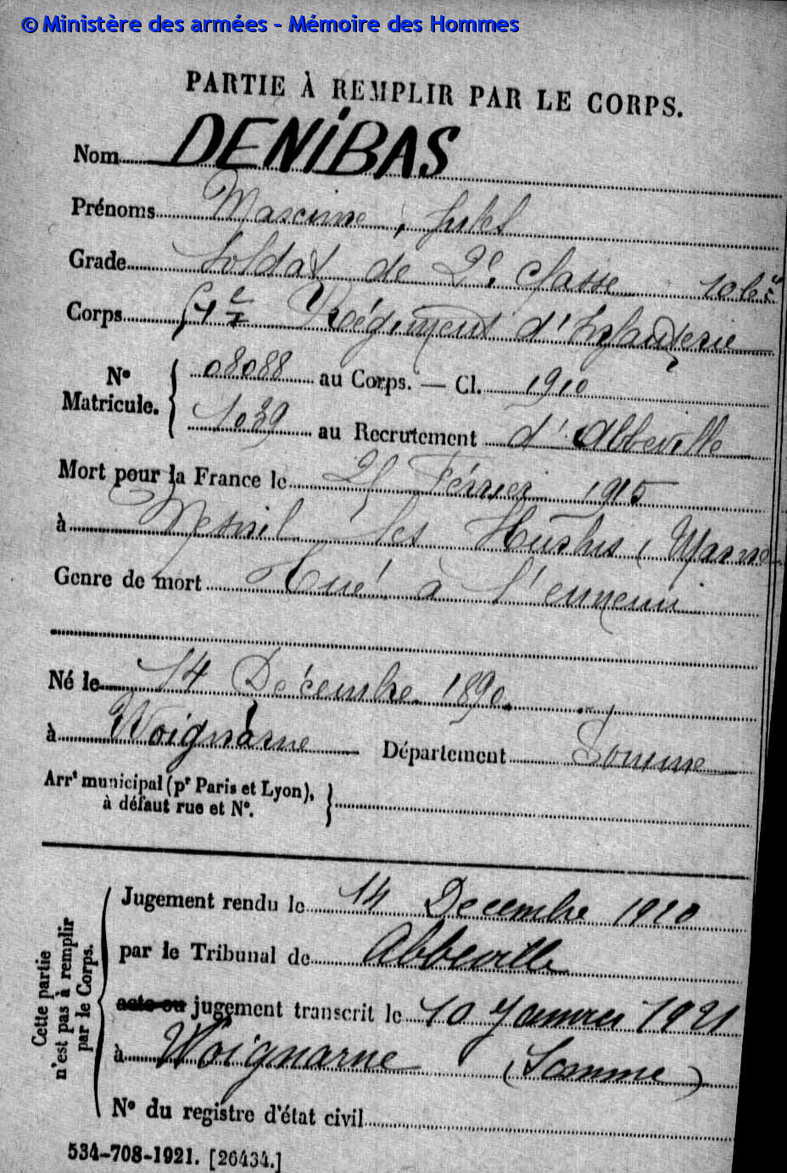 © Ministère des armées - Mémoire des Hommes
PARTIE À REMPLIR PAR LE CORPS.
Nom DENIBAS
Prénoms Maxime, Jules
Grade Soldat de 2e classe
Corps Régiment d'Infanterie
No Matricule. { 08088 au Corps. — Cl. 1910
1039 au Recrutement d'Abbeville
Mort pour la France le 25 Février 1915
à Mesnil les Hurlus (Marne
Genre de mort Tué à l'ennemi
Né le 14 Décembre 1890
à Woignarue Département Somme
Arrt municipal (pr Paris et Lyon), }
à défaut rue et No.
Cette partie n'est pas à remplir par le Corps.
Jugement rendu le 14 Decembre 1920
par le Tribunal de Abbeville
acte ou jugement transcrit le 10 Janvier 1921
à Woignarue (Somme)
No du registre d'état civil
534-708-1921. [26434.]